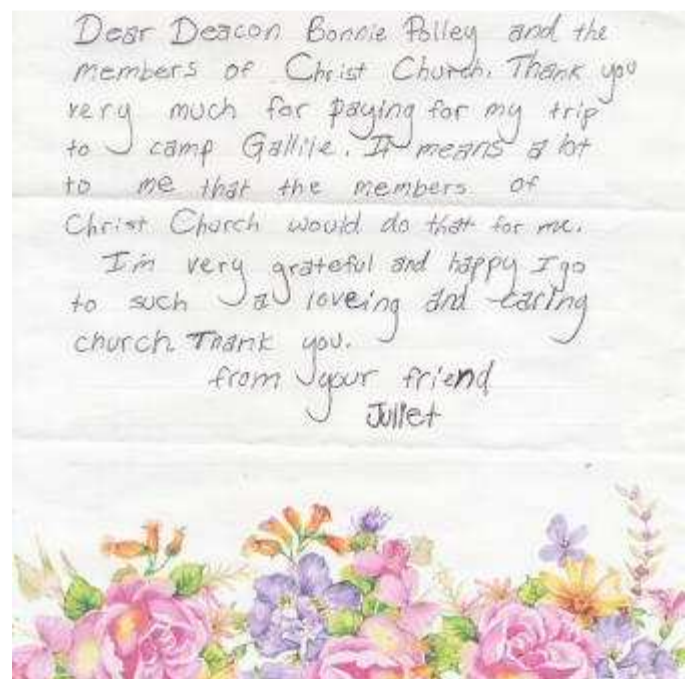 Dear Deacon Bonnie Polley and the
members of Christ Church. Thank you
very much for paying for my trip
to camp Gallile. It means a lot
to me that the members of
Christ Church would do that for me.
I'm very grateful and happy I go
to such a loveing and caring
church. Thank you.
from your friend
Juliet